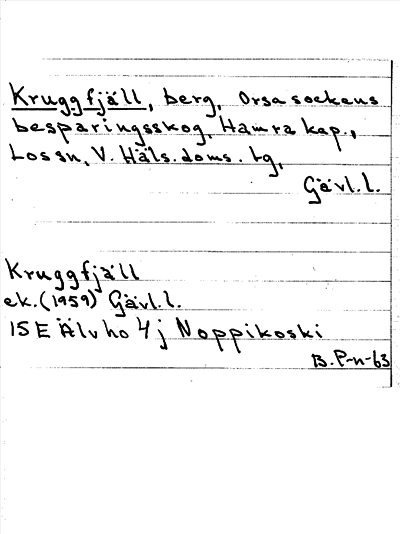 Kruggfjäll, berg, Orsa sockens
besparingsskog, Hamra kap.,
Los sn, V. Häls. doms. tg,
Gävl. l.
Kruggfjäll
ek. (1959) Gävl. l.
15 E Älvho 4j Noppikoski
B. P-n-63